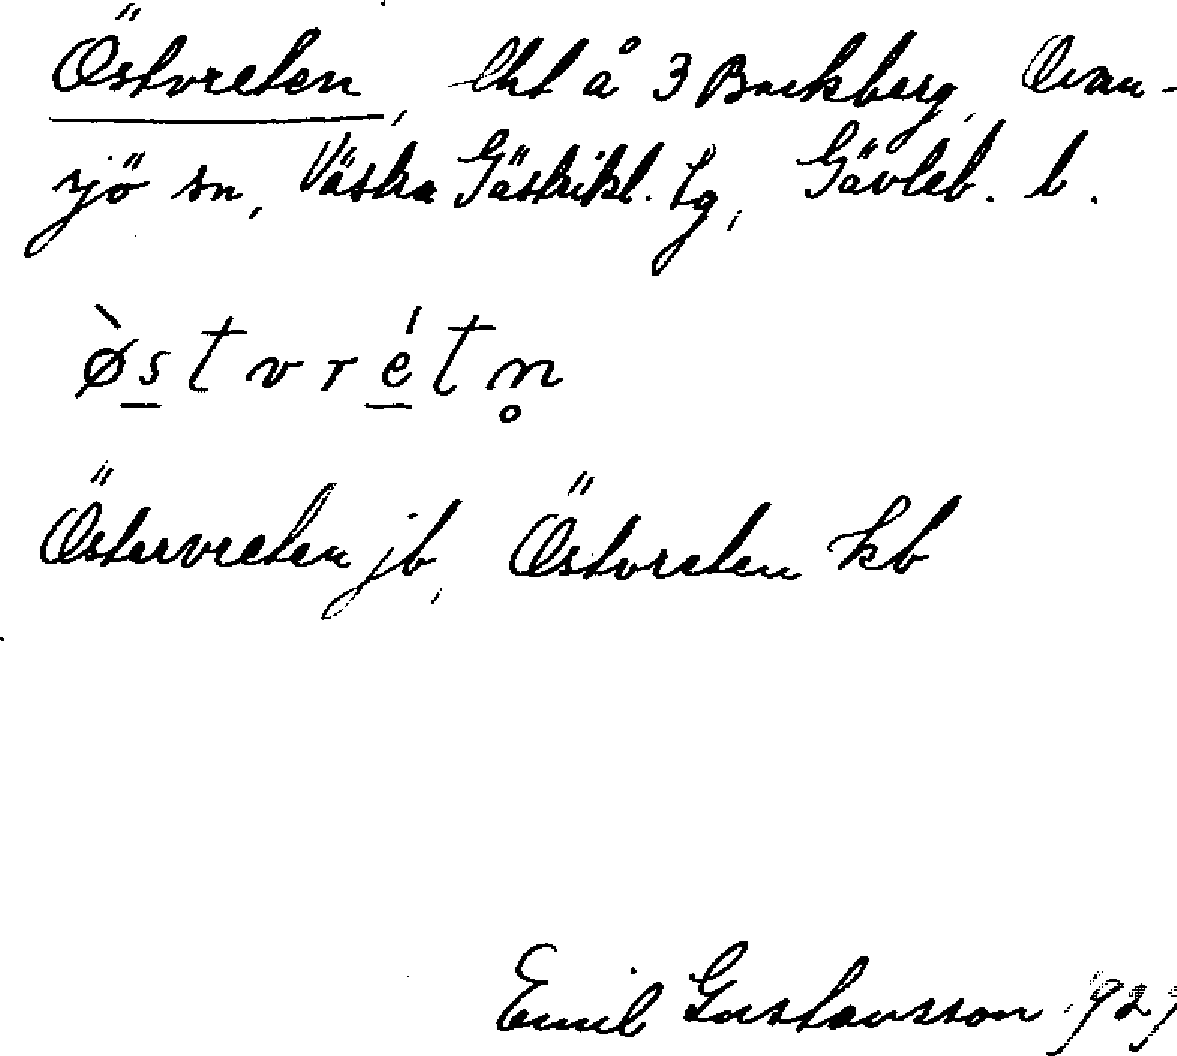 Östvreten, lht å 3 Backberg, Ovan-
sjö sn, Västra Gästrikl. tg, Gävleb. l.
ø̀s̲tvré̲tn̥
Östervreten jb, Östvreten kb
Emil Gustavsson 1929